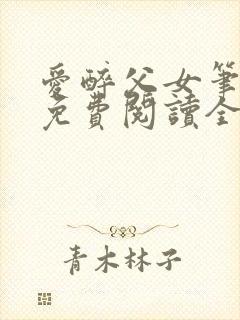 愛醉父女筆
免費閱讀全
青木林子